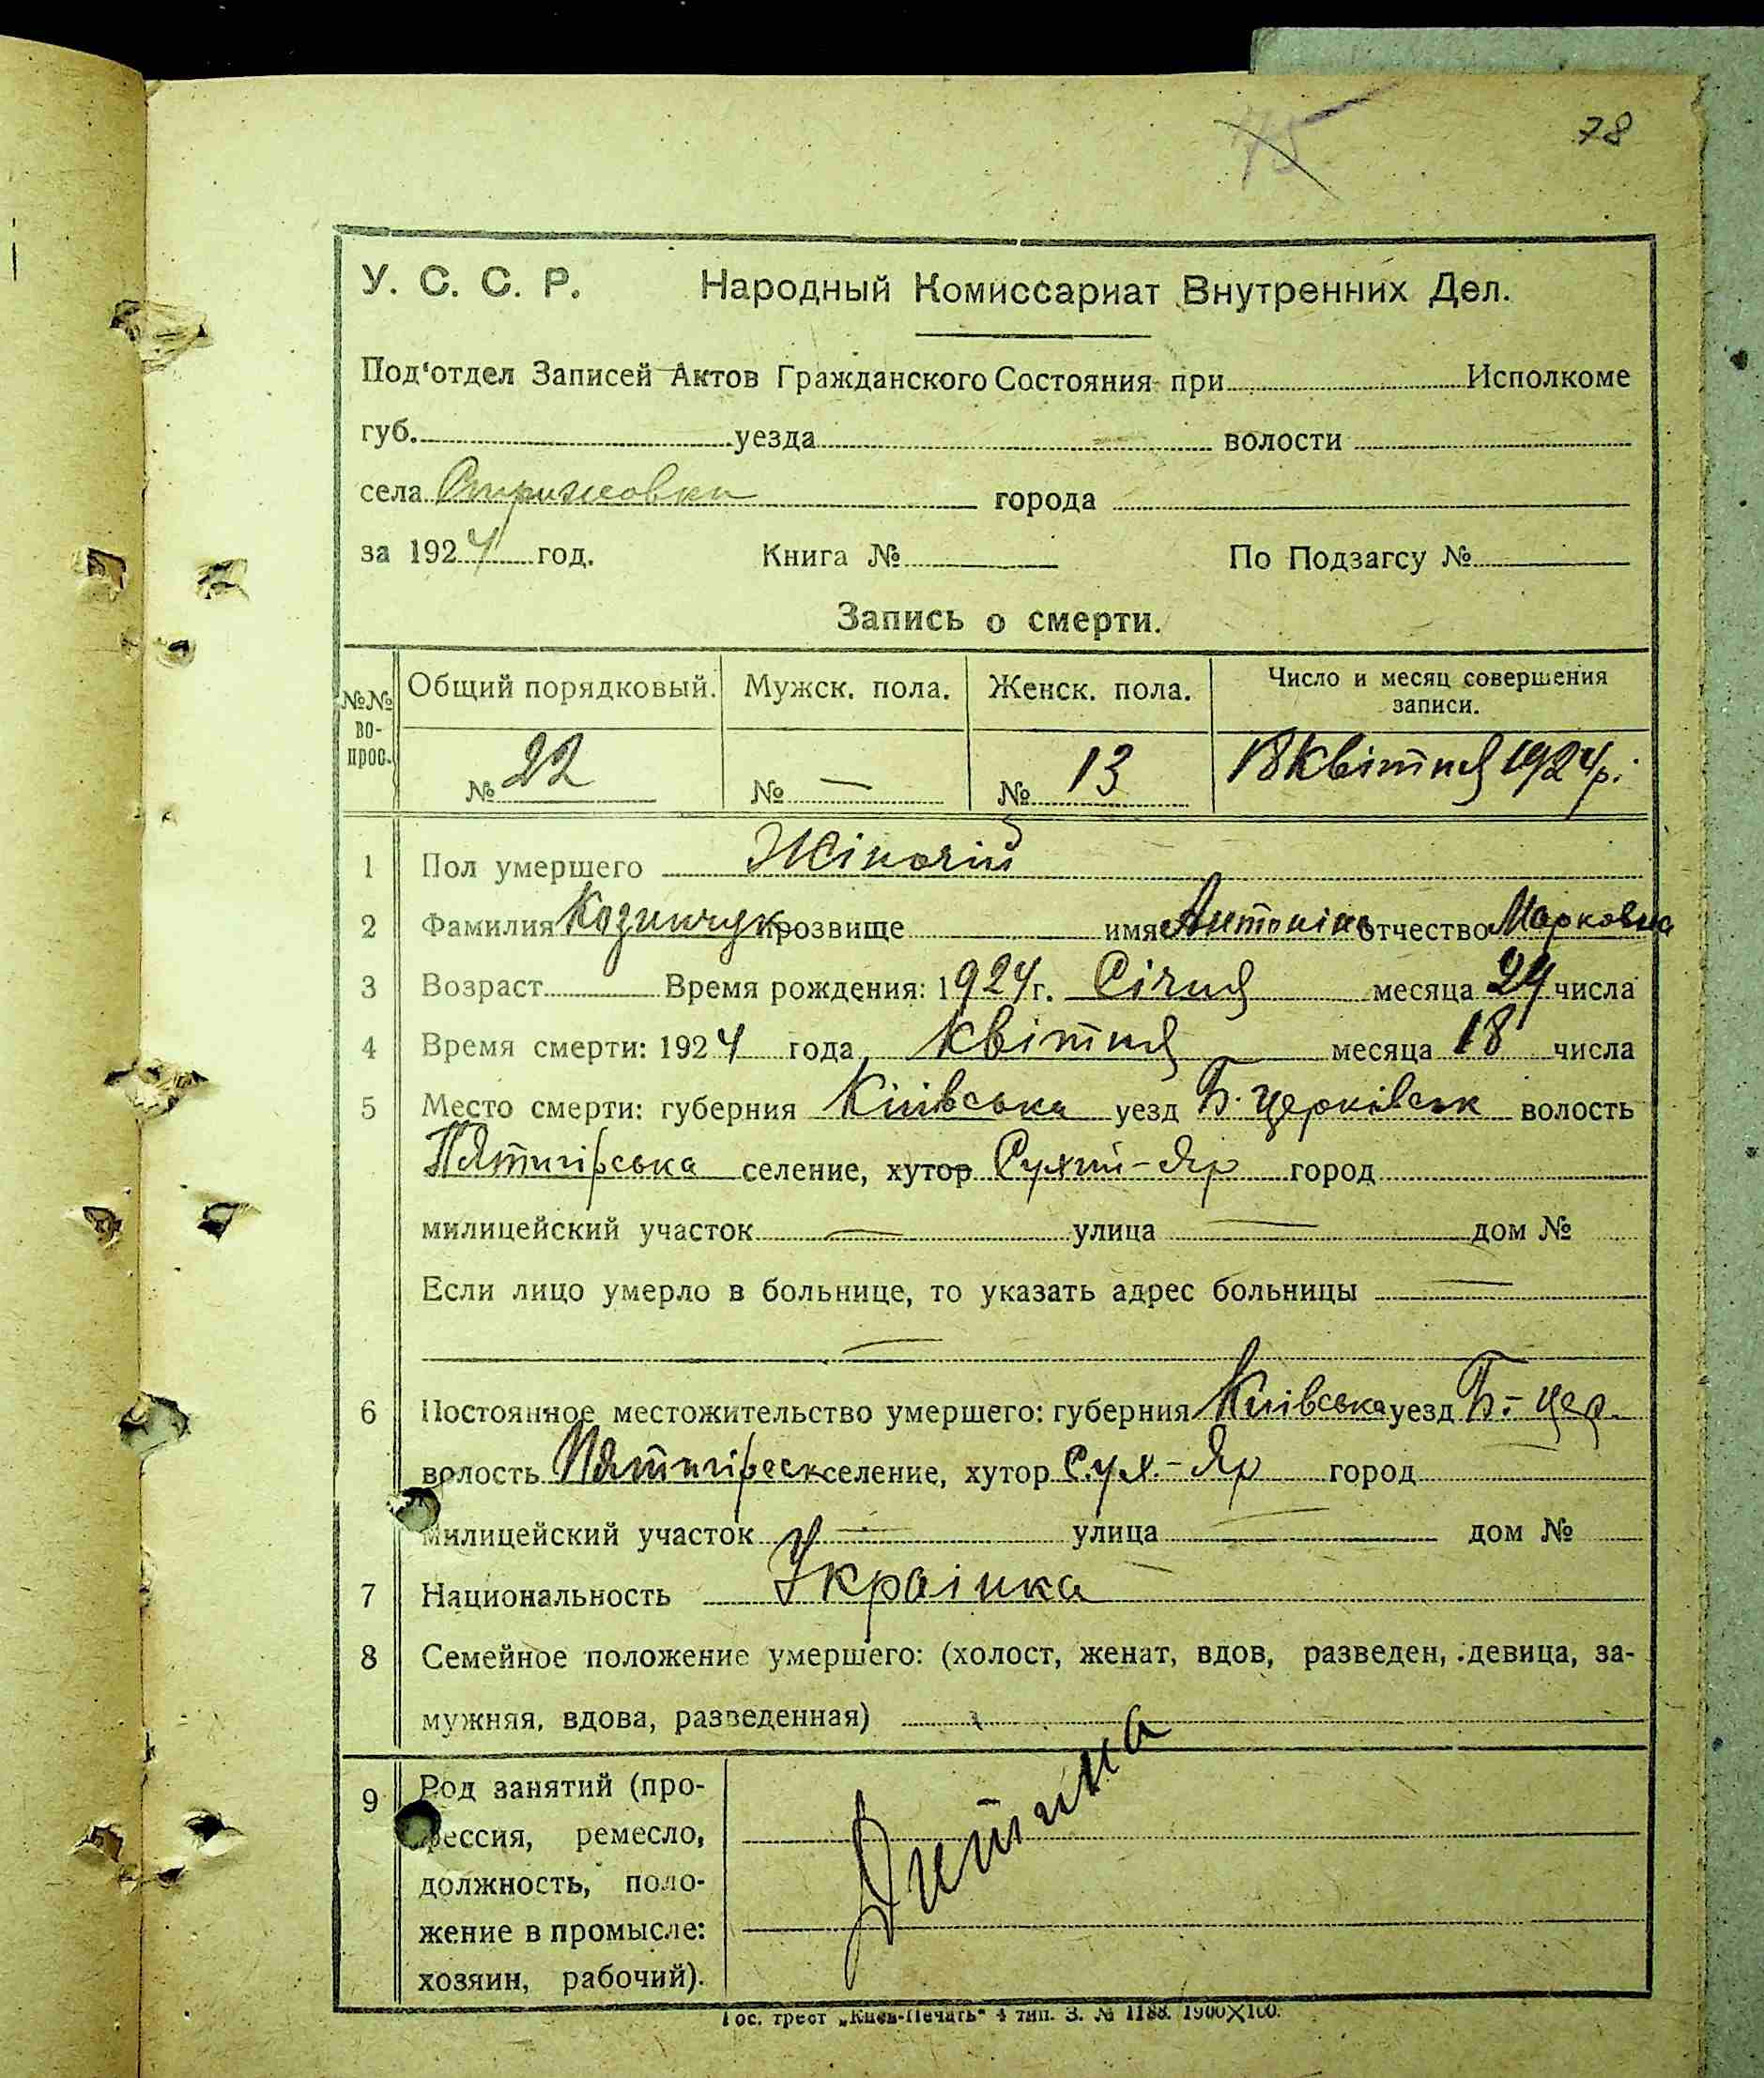 75
78
У. С. С. Р. Народный Комиссариат Внутренних Дел.
Под'отдел Записей Актов Гражданского Состояния при Исполкоме
губ. уезда волости
села Стрижовки города
за 1924 год. Книга № По Подзагсу №
Запись о смерти.
№№ во- прос. Общий порядковый. Мужск. пола. Женск. пола. Число и месяц совершения записи.
№ 22 № — № 13 18 квітня 1924 р.
1 Пол умершего Жіночій
2 Фамилия прозвище имя Антоніна отчество Марковна
3 Возраст Время рождения: 1924 г. Січня месяца 24 числа
4 Время смерти: 1924 года квітня месяца 18 числа
5 Место смерти: губерния Київська уезд Б. церківськ волость
Пятигірська селение, хутор Сухий-Яр город
милицейский участок — улица — дом №
Если лицо умерло в больнице, то указать адрес больницы —
—
6 Постоянное местожительство умершего: губерния Київська уезд Б.-цер.
волость Пятигірськ селение, хутор Сух.-Яр город
милицейский участок — улица — дом №
7 Национальность Украінка
8 Семейное положение умершего: (холост, женат, вдов, разведен, девица, за-
мужняя, вдова, разведенная)
9 Род занятий (про-
фессия, ремесло,
должность, поло-
жение в промысле:
хозяин, рабочий).
Дитина
Гос. трест „Киев-Печать" 4 тип. З. № 1188. 1900X100.